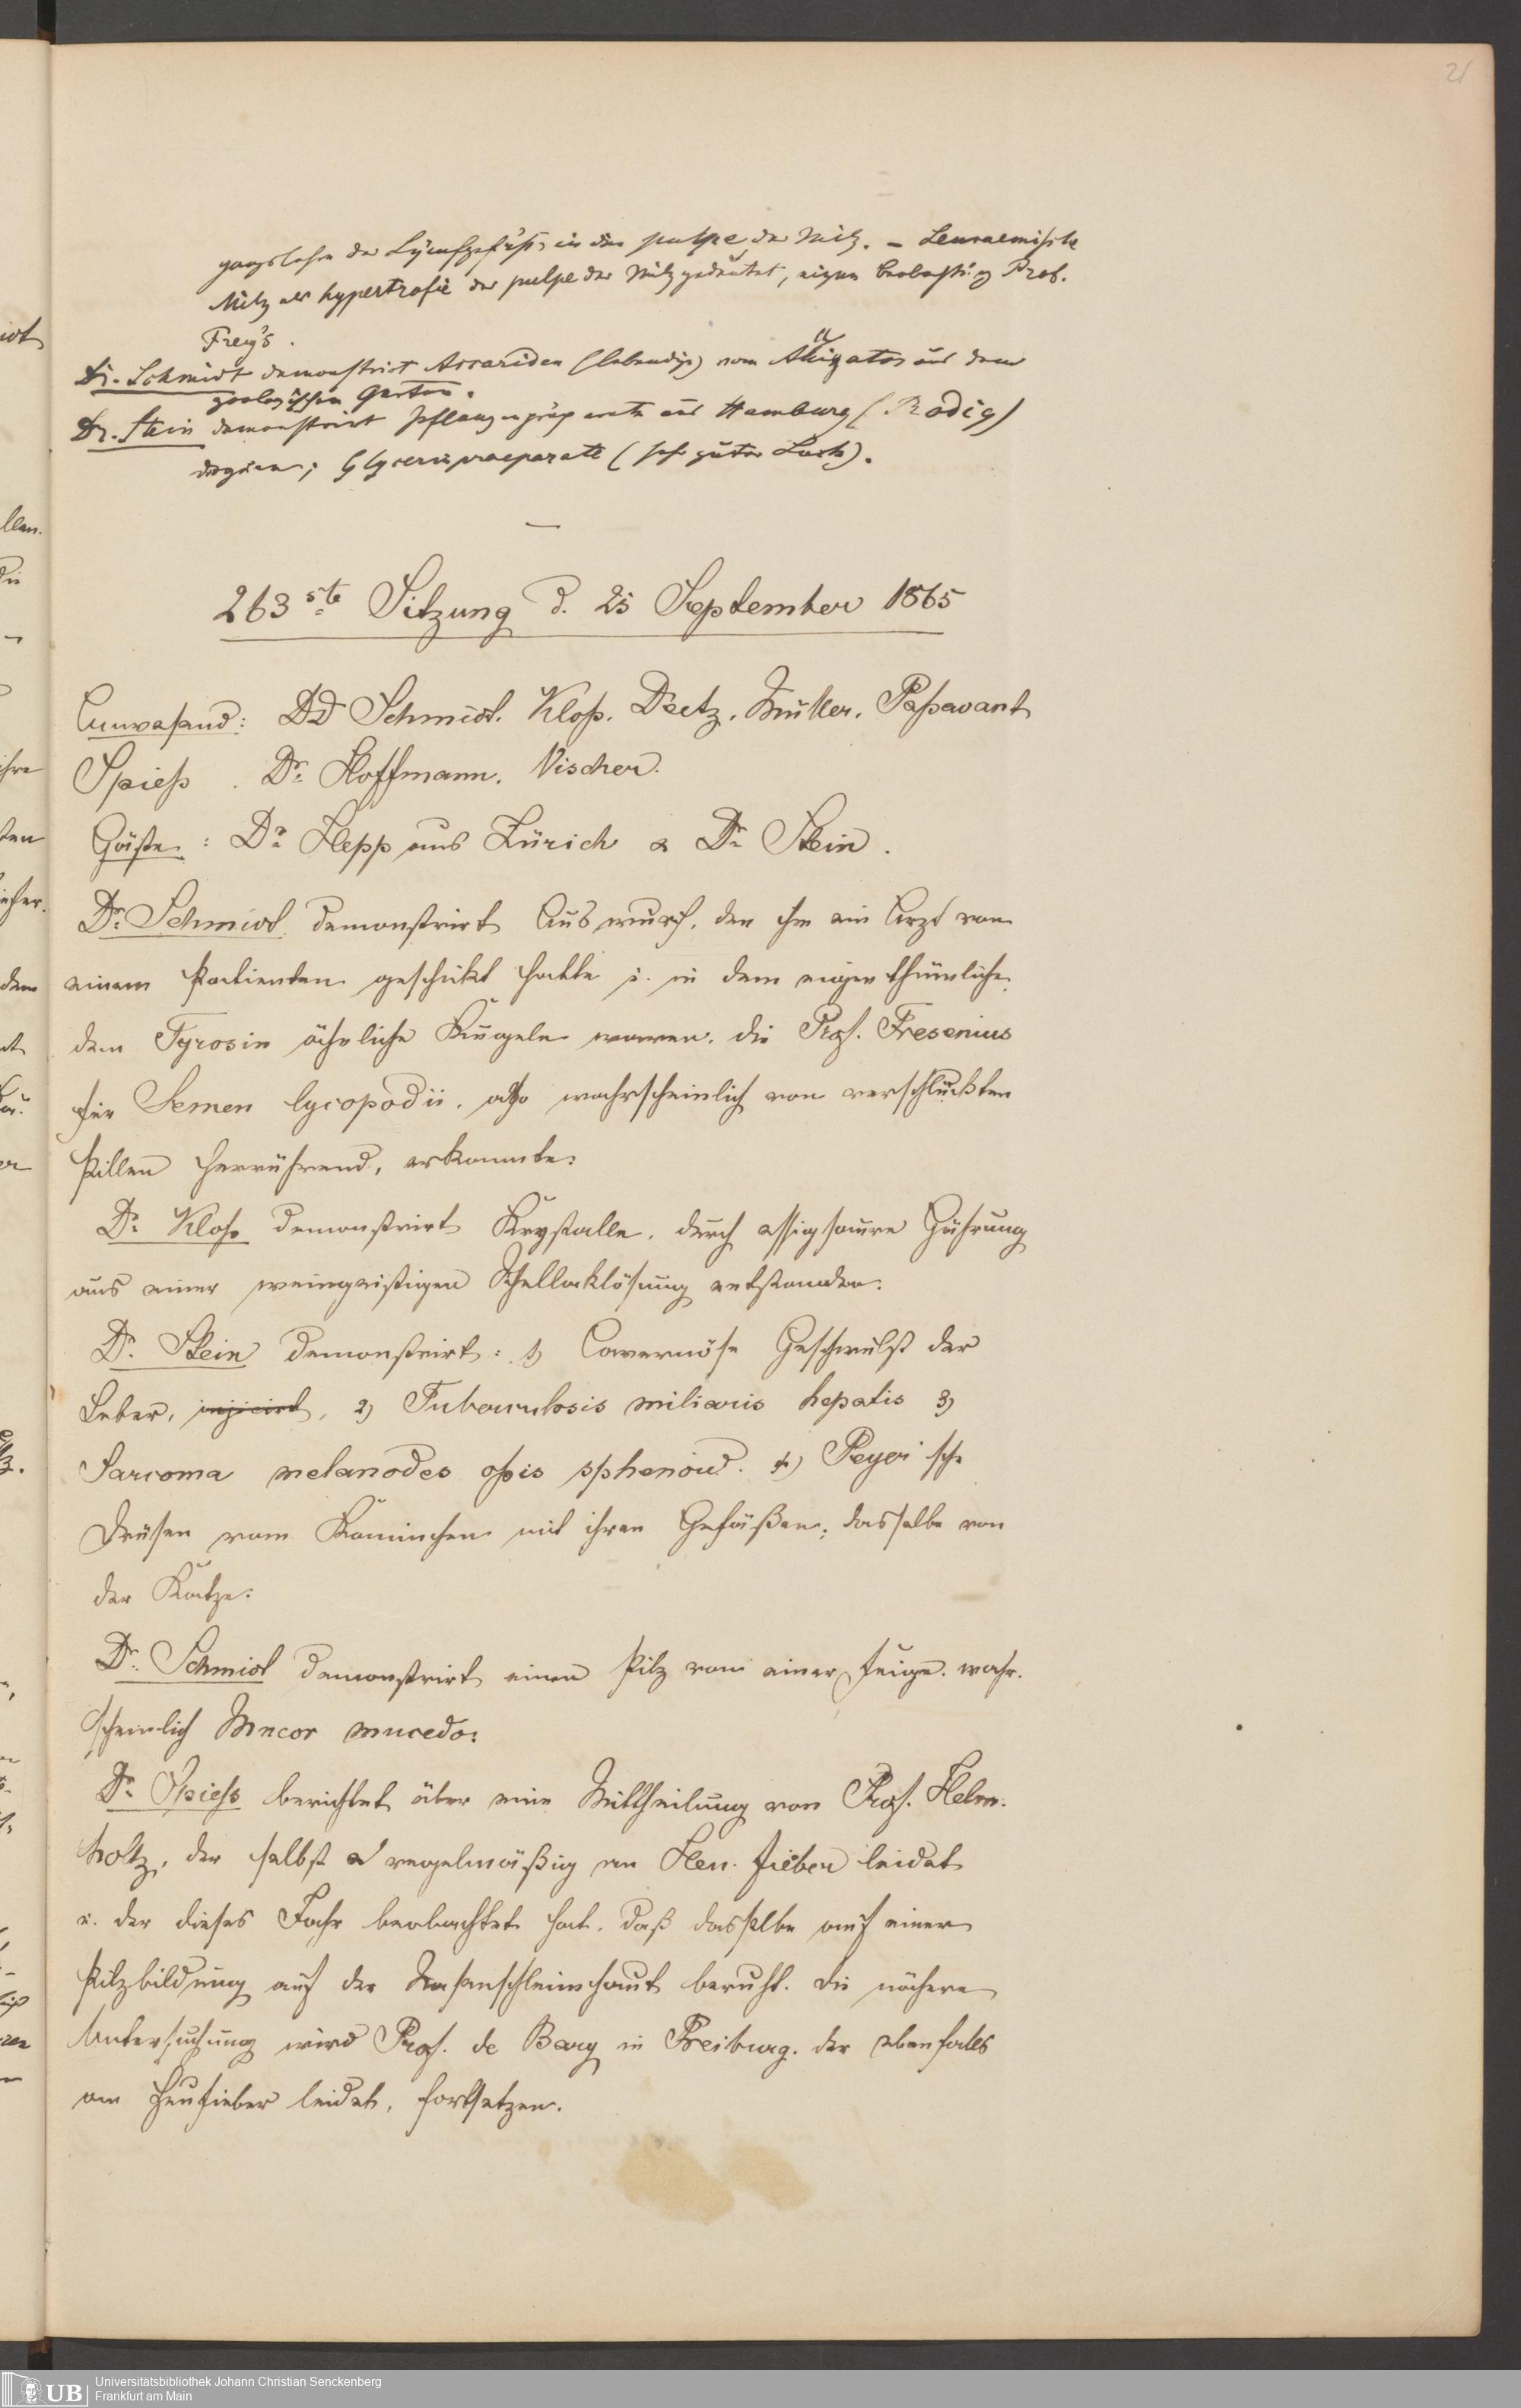 21
der Lÿmfgefäße in die pulpe der Milz. – Leucaemische
Milz als hypertrofie der pulpe der Milz gedeutet, eigene Beobachtung Prof.
Frey's.
Dr. Schmidt demonstrirt Ascariden (lebendige) vom Alligator aus dem
zoologischen Garten.
Dr. Stein demonstrirt Pflanzenpräparate aus Hamburg (Rodig)
Glycerinpraeparate (sehr guter Lack).
263ste Sitzung d. 25 September 1865
Anwesend: DD Schmidt. Kloß. Deetz. Müller. Paßavant
Spieß. Dr. Hoffmann. Vischer.
Gäste: Dr. Hepp aus Zürich & Dr. Stein.
Dr. Schmidt demonstrirt Auswurf, den ihm ein Arzt von
einem Patienten geschickt hatte u. in dem eigenthümliche
dem Tyrosin ähnliche Kugeln waren, die Prof. Fresenius
für Semen lycopodii, also wahrscheinlich von verschluckten
Pillen herrührend, erkannte.
Dr. Kloß demonstrirt Krystalle, durch essigsaure Gährung
aus einer weingeistigen Schellacklösung entstanden.
Dr. Stein demonstrirt: 1) Cavernöse Geschwulst der
Leber, injicirt, 2) Tuberculosis miliaris hepatis 3)
Sarcoma melanodes oßis sphenoid. 4) Peyer'sche
Drüsen vom Kaninchen mit ihren Gefäßen; dasselbe von
der Katze.
Dr. Schmidt demonstrirt einen Pilz von einer Feige, wahr-
scheinlich Mucor mucedo.
Dr. Spieß berichtet über eine Mittheilung von Prof. Helm-
holtz, der selbst regelmäßig an Heu-fieber leidet
u. der dieses Jahr beobachtet hat, daß dasselbe auf einer
Pilzbildung auf der Nasenschleimhaut beruht. Die nähere
Untersuchung wird Prof. de Bary in Freiburg, der ebenfalls
am Heufieber leidet, fortsetzen.
UB
Universitätsbibliothek Johann Christian Senckenberg
Frankfurt am Main